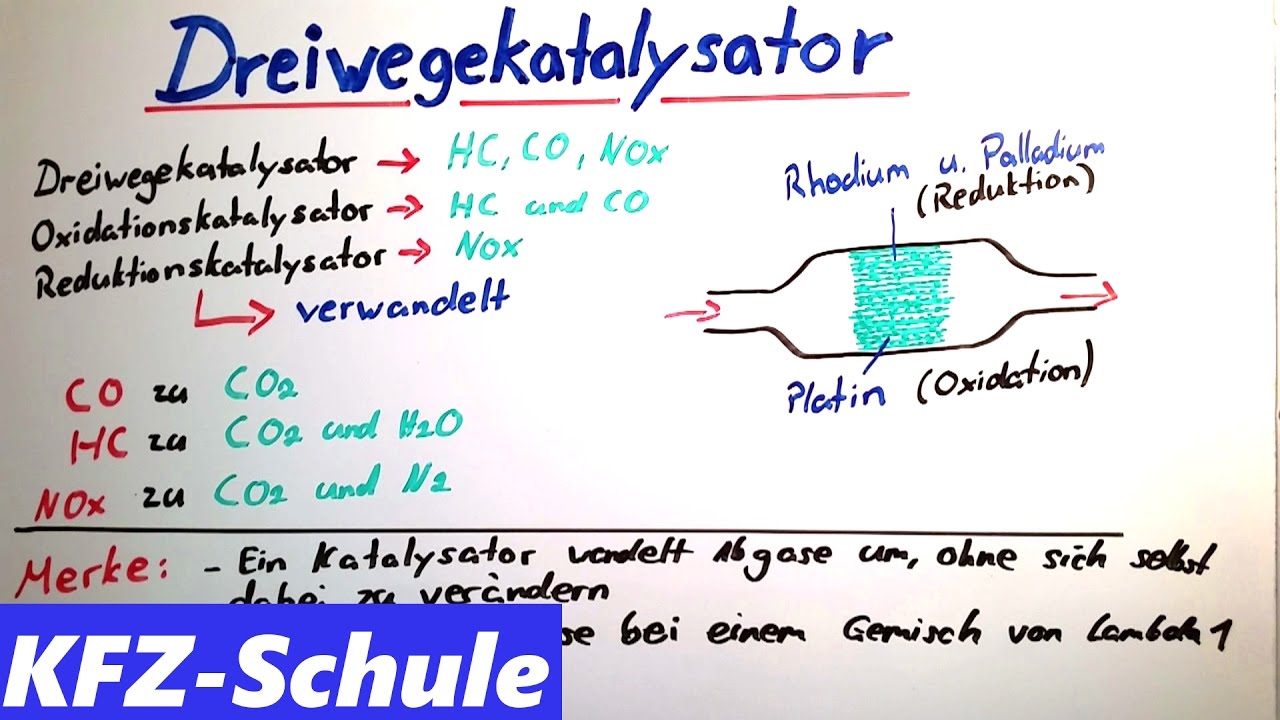 Dreiwegekatalysator
Dreiwegekatalysator → HC, CO, NOx
Oxidationskatalysator → HC und CO
Reduktionskatalysator → NOx
verwandelt
CO zu CO2
HC zu CO2 und H2O
NOx zu CO2 und N2
Rhodium u. Palladium
(Reduktion)
Platin (Oxidation)
Merke: - Ein Katalysator wandelt Abgase um, ohne sich selbst
dabei zu verändern
bei einem Gemisch von Lambda 1
KFZ-Schule